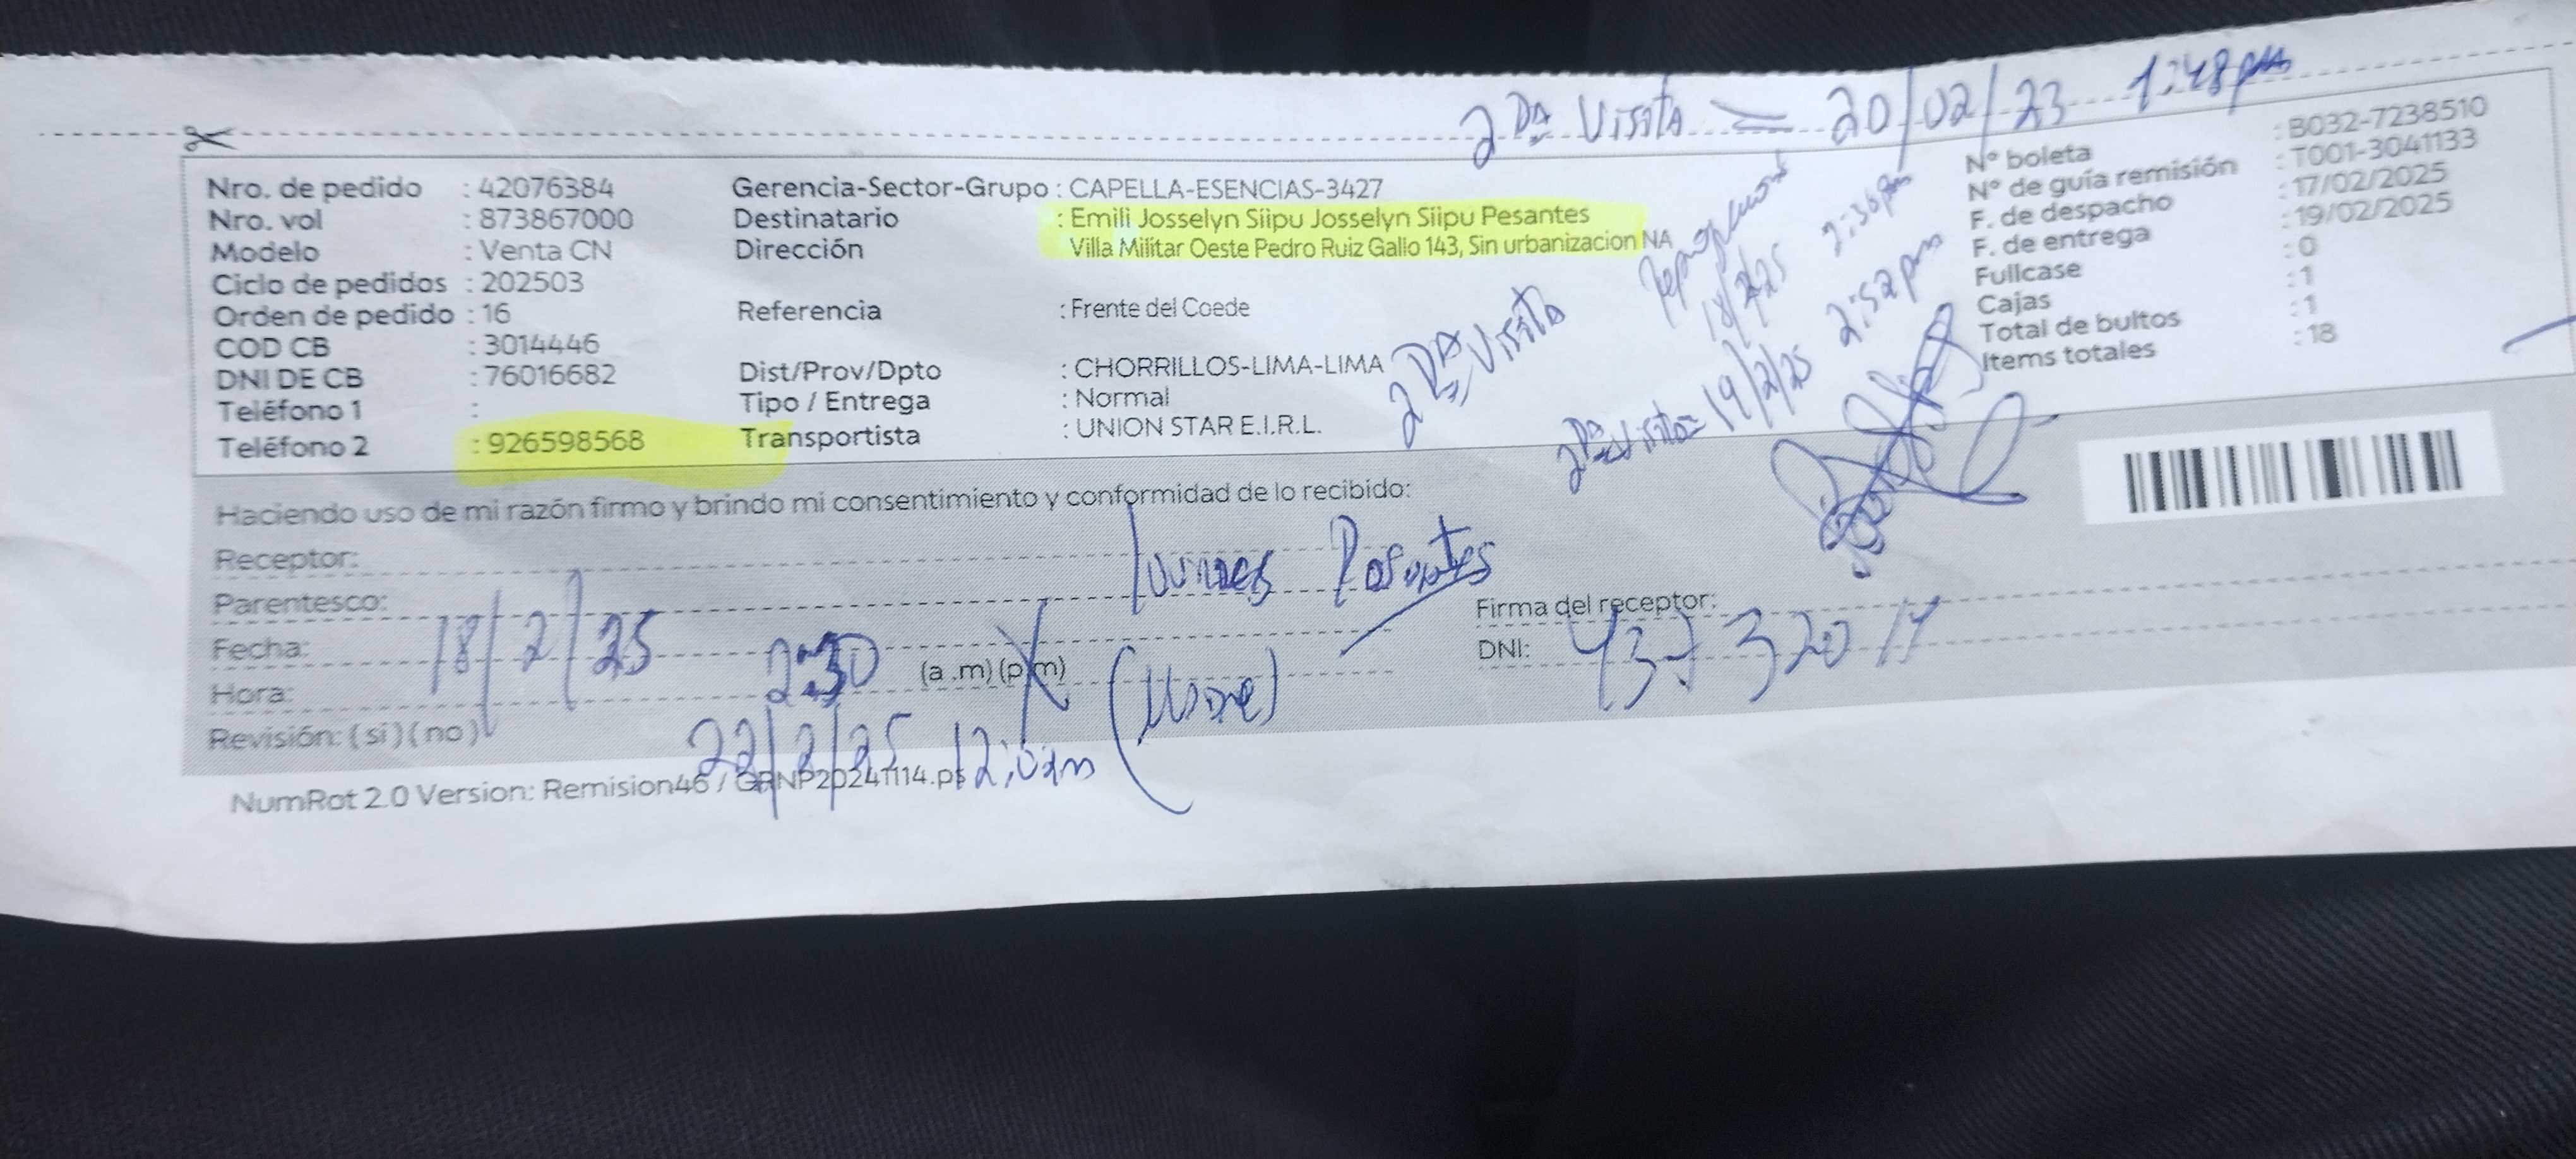 2DA Visita = 20/02/23 1:48pm
Nro. de pedido : 42076384
Nro. vol : 873867000
Modelo : Venta CN
Ciclo de pedidos : 202503
Orden de pedido : 16
COD CB : 3014446
DNI DE CB : 76016682
Teléfono 1 :
Teléfono 2 : 926598568
Gerencia-Sector-Grupo : CAPELLA-ESENCIAS-3427
Destinatario : Emili Josselyn Siipu Josselyn Siipu Pesantes
Dirección Villa Militar Oeste Pedro Ruiz Gallo 143, Sin urbanizacion NA
Referencia : Frente del Coede
Dist/Prov/Dpto : CHORRILLOS-LIMA-LIMA
Tipo / Entrega : Normal
Transportista : UNION STAR E.I.R.L.
2DA Visita
18/2/25 2:36pm
2Da Visita= 19/2/25 2:52pm
Nº boleta : B032-7238510
Nº de guía remisión : T001-3041133
F. de despacho : 17/02/2025
F. de entrega : 19/02/2025
Fullcase : 0
Cajas : 1
Total de bultos : 1
Items totales : 18
Haciendo uso de mi razón firmo y brindo mi consentimiento y conformidad de lo recibido:
Receptor:
Parentesco:
Fecha: 18/2/25
Hora: 2:30 (a .m) (p.m)
Revisión: (si) (no)
22/2/25
Firma del receptor:
DNI:
NumRot 2.0 Version: Remision46 / GRNP20241114.ps